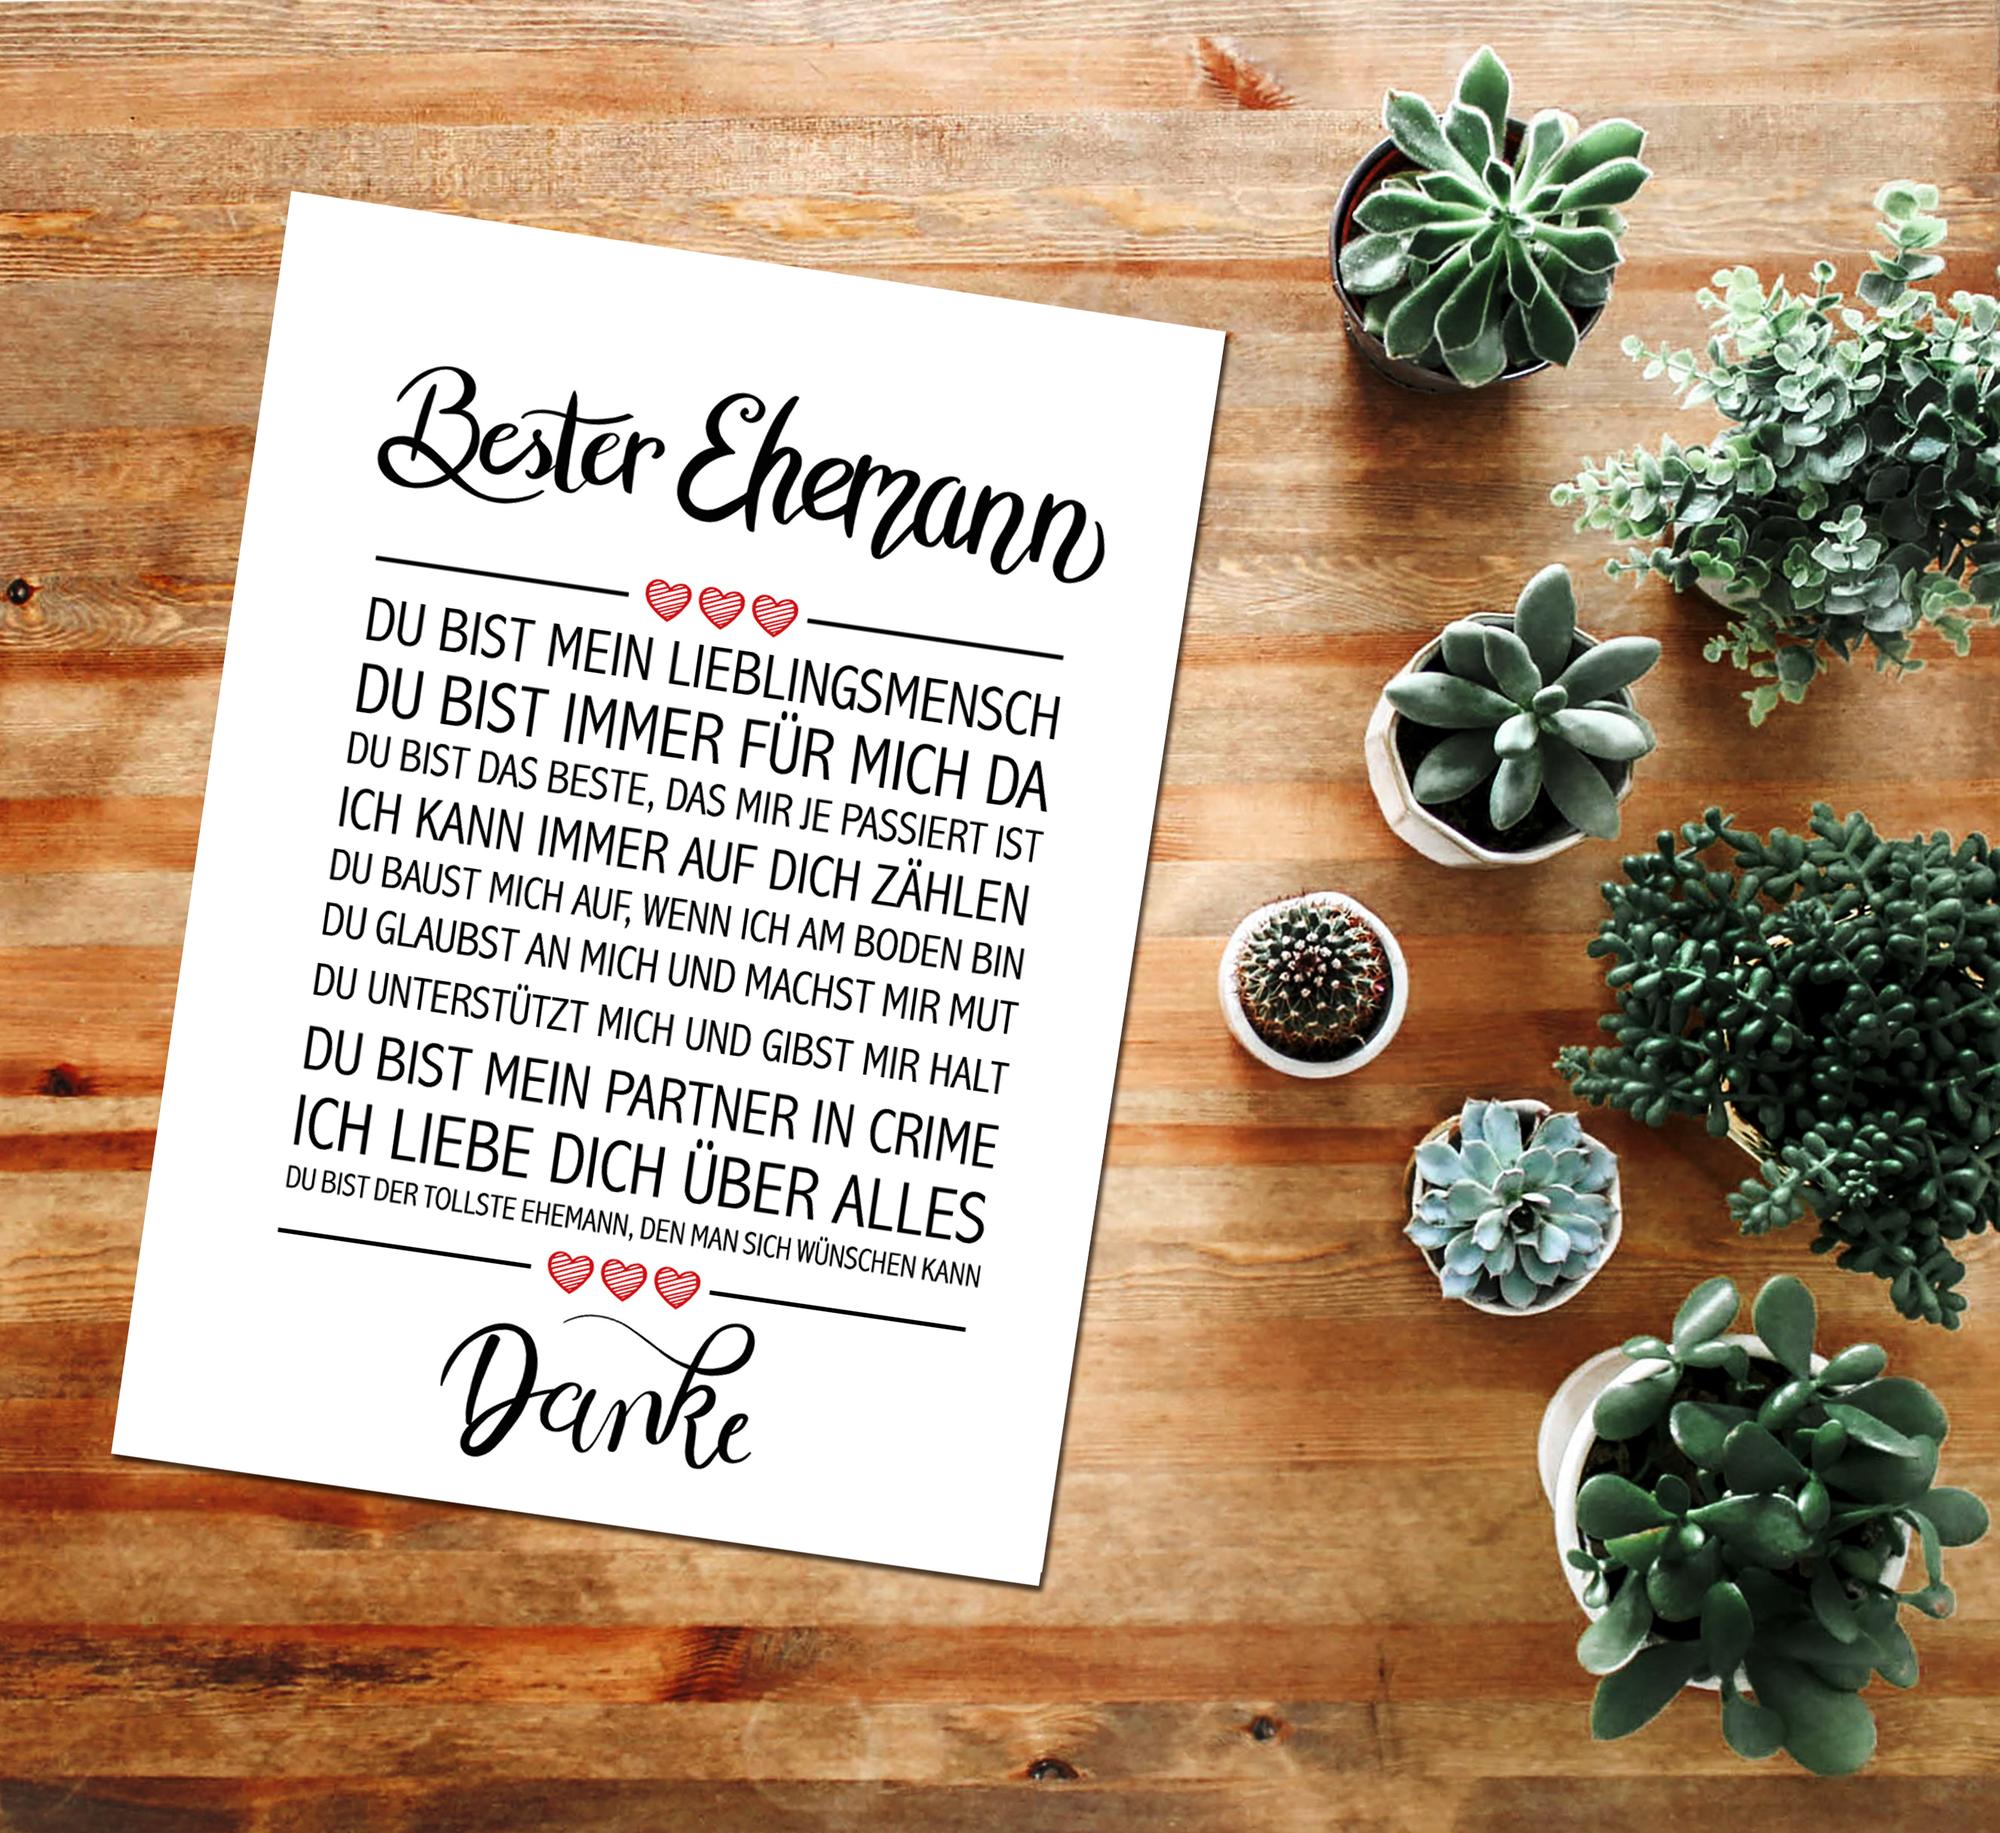 Bester Ehemann
DU BIST MEIN LIEBLINGSMENSCH
DU BIST IMMER FÜR MICH DA
DU BIST DAS BESTE, DAS MIR JE PASSIERT IST
ICH KANN IMMER AUF DICH ZÄHLEN
DU BAUST MICH AUF, WENN ICH AM BODEN BIN
DU GLAUBST AN MICH UND MACHST MIR MUT
DU UNTERSTÜTZT MICH UND GIBST MIR HALT
DU BIST MEIN PARTNER IN CRIME
ICH LIEBE DICH ÜBER ALLES
DU BIST DER TOLLSTE EHEMANN, DEN MAN SICH WÜNSCHEN KANN
Danke